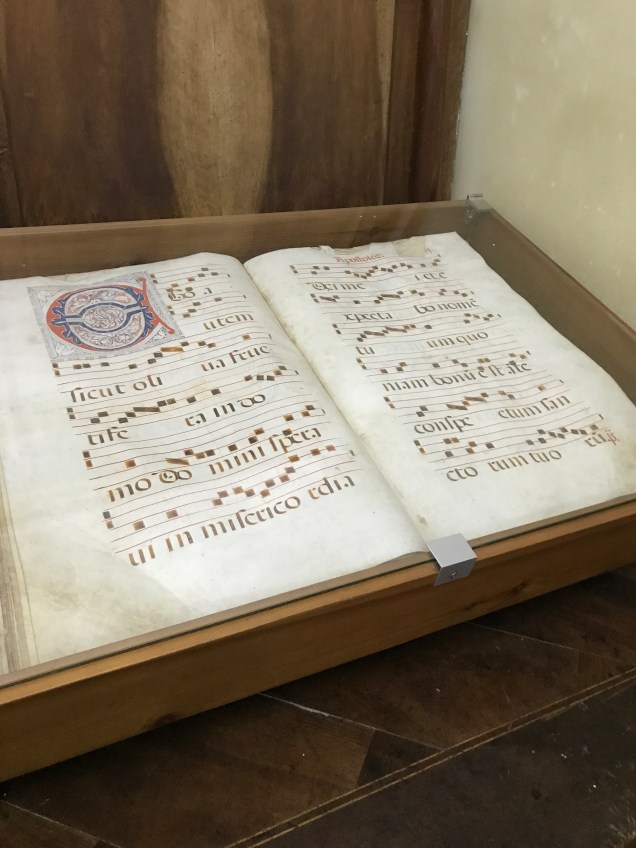 EGo a
utem
sicut oli ua fruc
tife ra in do
mo Do mini spera
ui in miserico rdia
Dei me i et e
xpecta bo nome
tu um quo
niam bonū ē st āte
conspe ctum san
cto rum tuo